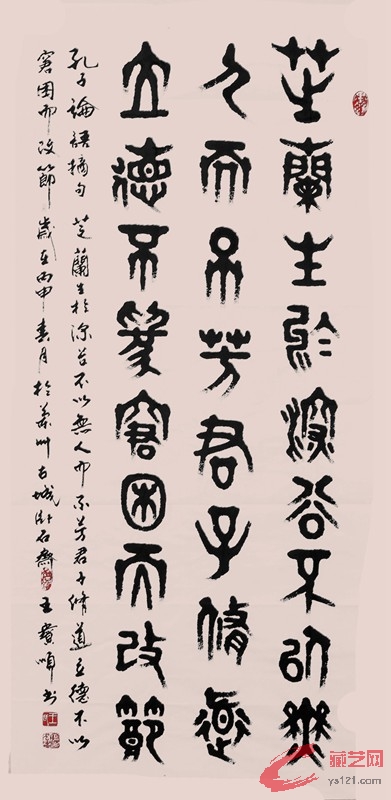 芝蘭生於深谷不以無
人而不芳君子脩道
立德不為窮困而改節
孔子論語摘句 芝蘭生於深谷不以無人而不芳君子脩道立德不以
窮困而改節 歲在丙申春月於州古城卧石齋 王寶順書
藏艺网
ys121.com